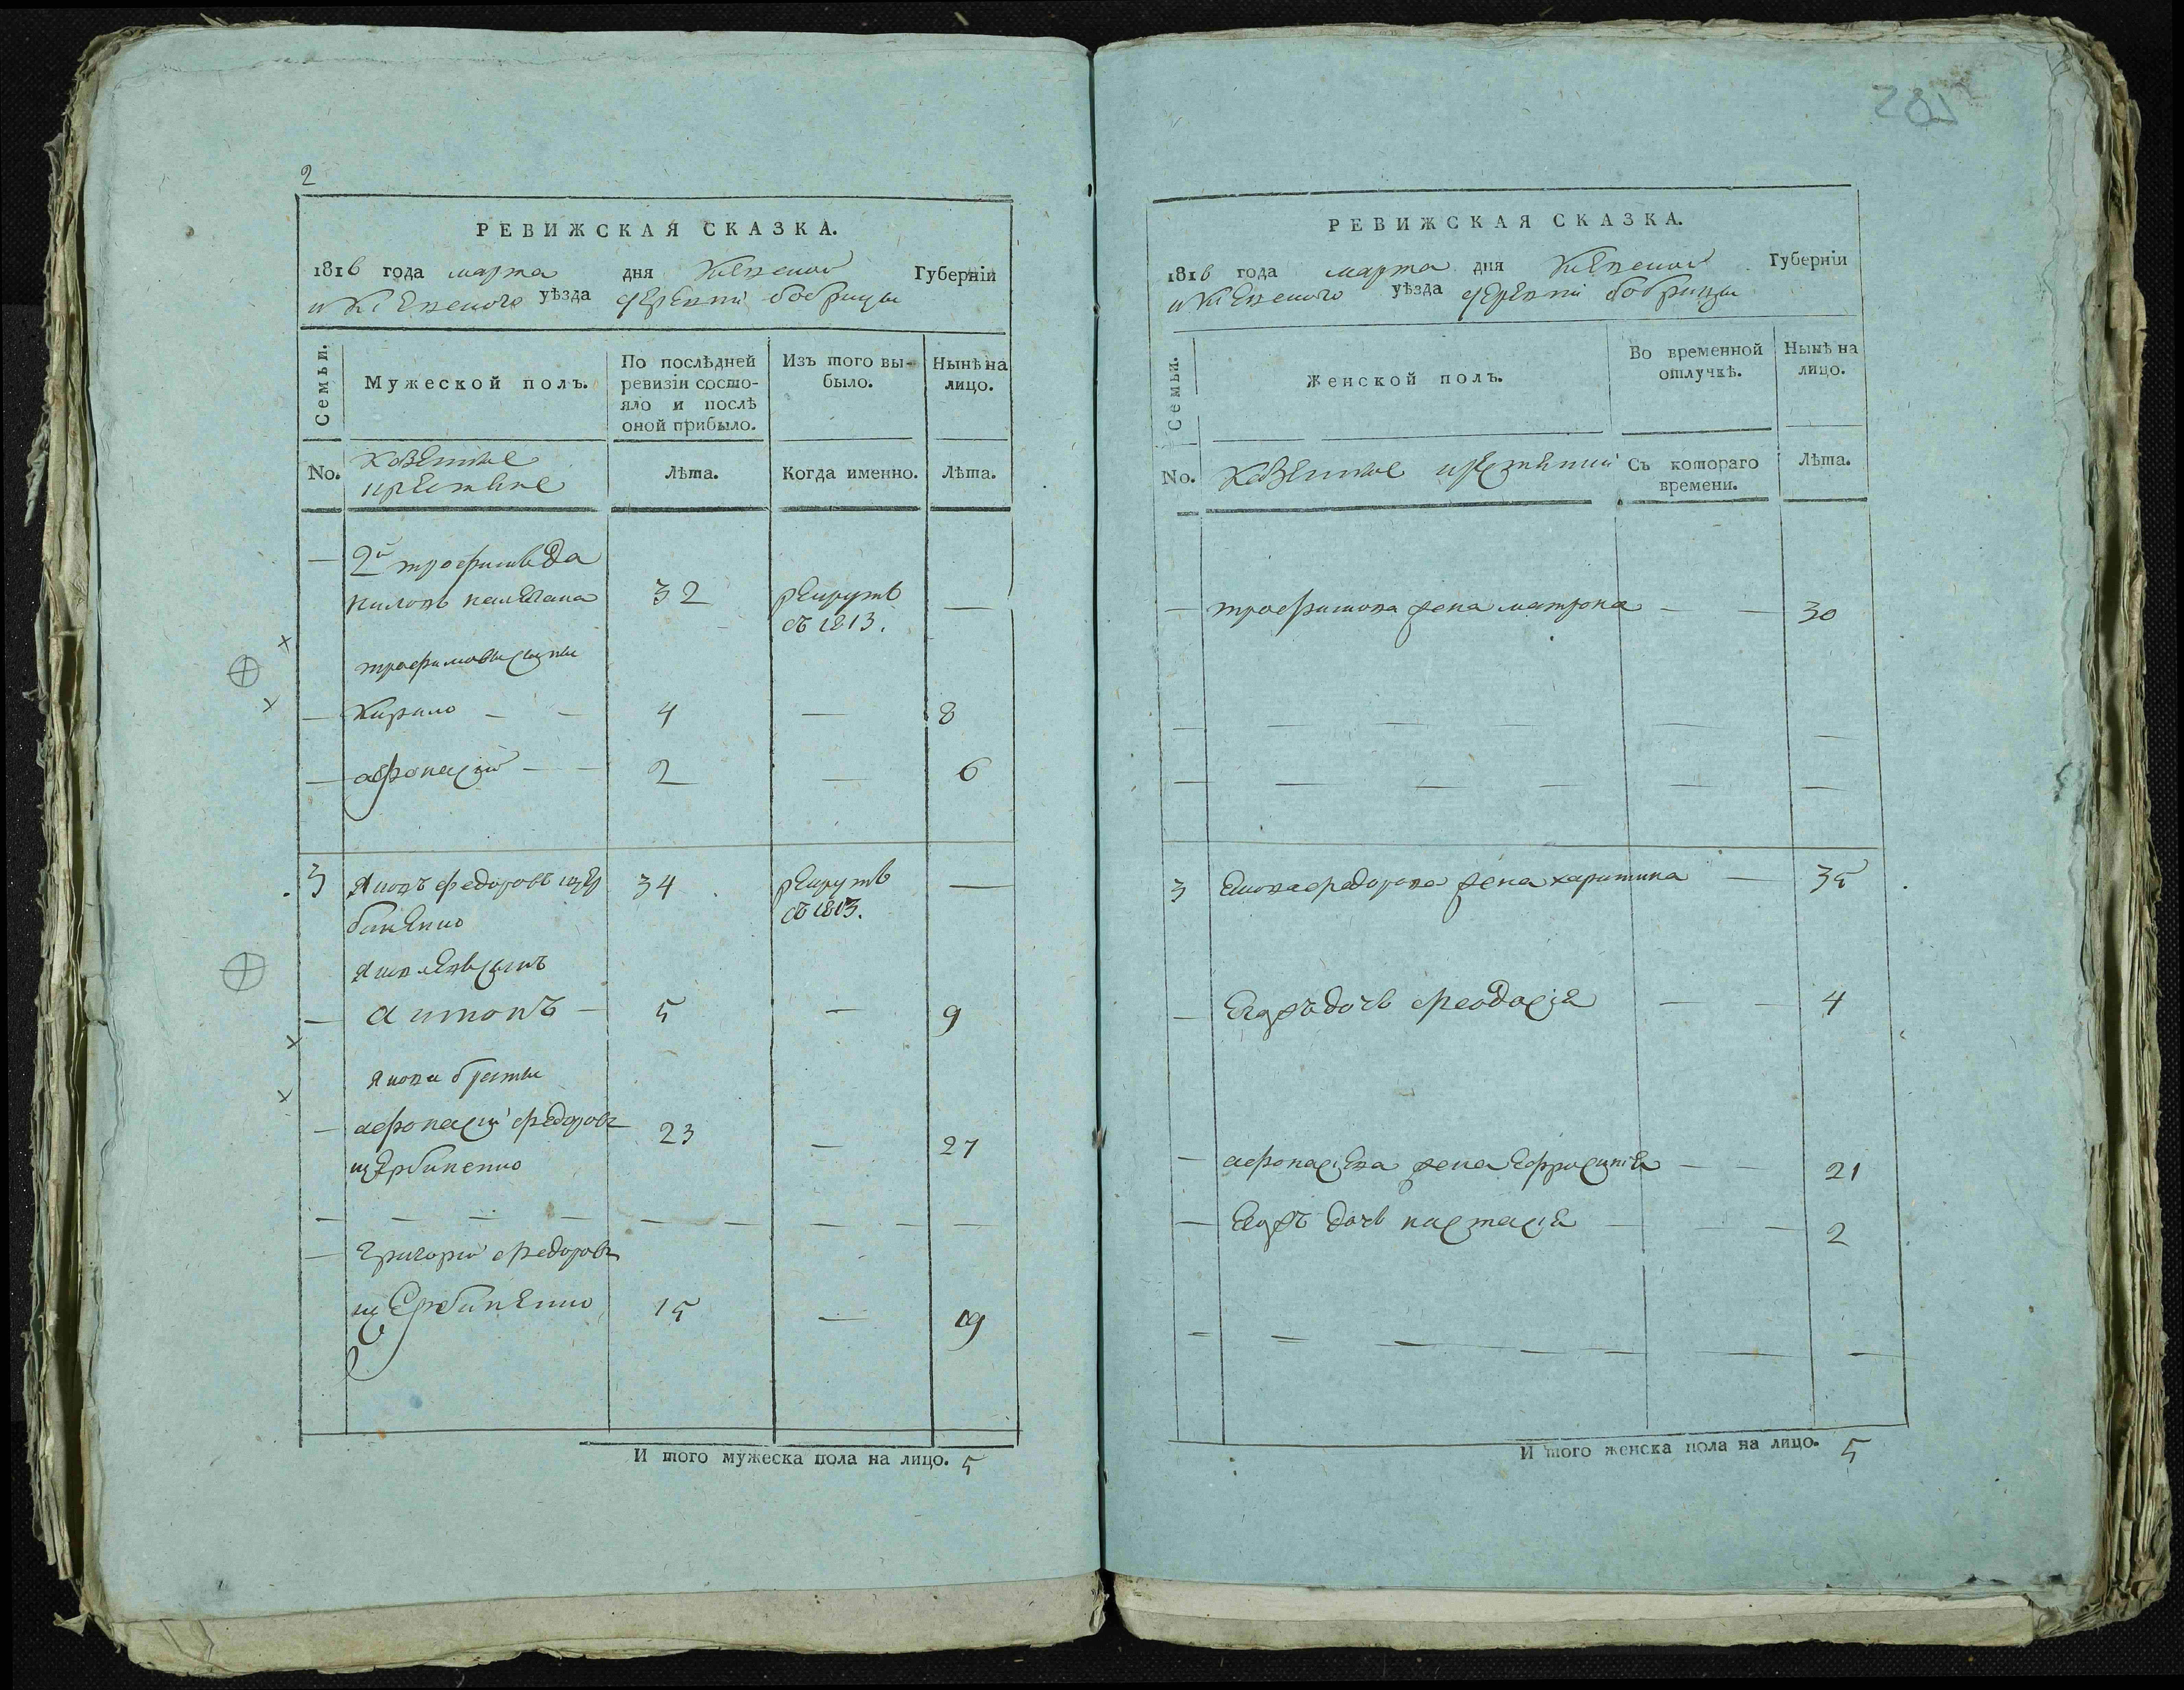 2
РЕВИЖСКАЯ СКАЗКА.
1816 года марта дня Киевской Губерніи
и Киевского уѣзда деревни бобрицы
Семьи.
Мужеской полъ.
По послѣдней ревизіи состо-
яло и послѣ
оной прибыло.
Изъ того вы-
было.
Нынѣ на
лицо.
No.
казенные
крестяне
Лѣта.
Когда именно.
Лѣта.
2й трофим
32
рекрутъ
съ 1813.
трофимовы сыны
Кирило 4 8
афонасий 2 6
3 Яковъ федоровъ щер 34 рекрутъ
биненко съ 1813.
сынъ
антонъ 5 9
якова браты
афонасий федоровъ 23 27
щербиненко
григорий федоровъ
щербиненко 15 19
И того мужеска пола на лицо. 5
281
РЕВИЖСКАЯ СКАЗКА.
1816 года марта дня Киевской Губерніи
и Киевского уѣзда деревни бобрицы
Семьи.
Женской полъ.
Во временной
отлучкѣ.
Нынѣ на
лицо.
No.
казенные крестянки
Съ котораго
времени.
Лѣта.
трофимова жена матрона 30
3 Якова федорова жена харитина 35
Егожъ дочь феодосія 4
афонасиева жена Ефросиния 21
Егожъ дочь настасія 2
И того женска пола на лицо. 5